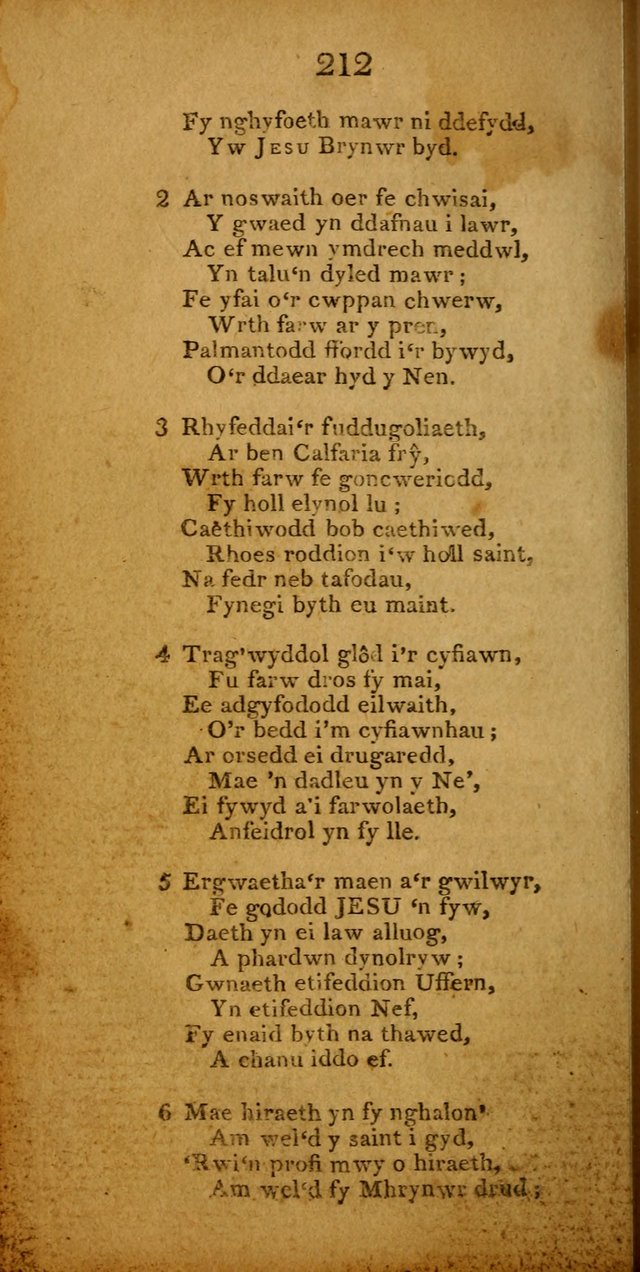 212
Fy nghyfoeth mawr ni ddefydd,
Yw JESU Brynwr byd.
2 Ar noswaith oer fe chwisai,
Y gwaed yn ddafnau i lawr,
Ac ef mewn ymdrech meddwl,
Yn talu‘n dyled mawr;
Fe yfai o‘r cwppan chwerw,
Wrth farw ar y pren,
Palmantodd ffordd i‘r bywyd,
O‘r ddaear hyd y Nen.
3 Rhyfeddai‘r fuddugoliaeth,
Ar ben Calfaria frŷ,
Wrth farw fe goncwericdd,
Fy holl elynol lu;
Caêthiwodd bob caethiwed,
Rhoes roddion i‘w holl saint,
Na fedr neb tafodau,
Fynegi byth eu maint.
4 Trag’wyddol glôd i’r cyfiawn,
Fu farw dros fy mai,
Ee adgyfododd eilwaith,
O’r bedd i’m cyfiawnhau;
Ar orsedd ei drugaredd,
Mae ’n dadleu yn y Ne’,
Ei fywyd a'i farwolaeth,
Anfeidrol yn fy lle.
5 Ergwaetha‘r maen a‘r gwilwyr,
Fe gododd JESU ‘n fyw,
Daeth yn ei law alluog,
A phardwn dynolryw;
Gwnaeth etifeddion Uffern,
Yn etifeddion Nef,
Fy enaid byth na thawed,
A chanu iddo ef.
6 Mae hiraeth yn fy nghalon’
Am wel‘d y saint i gyd,
‘Rwi‘n profi mwy o hiraeth,
Am wel‘d fy Mhrynwr drud;